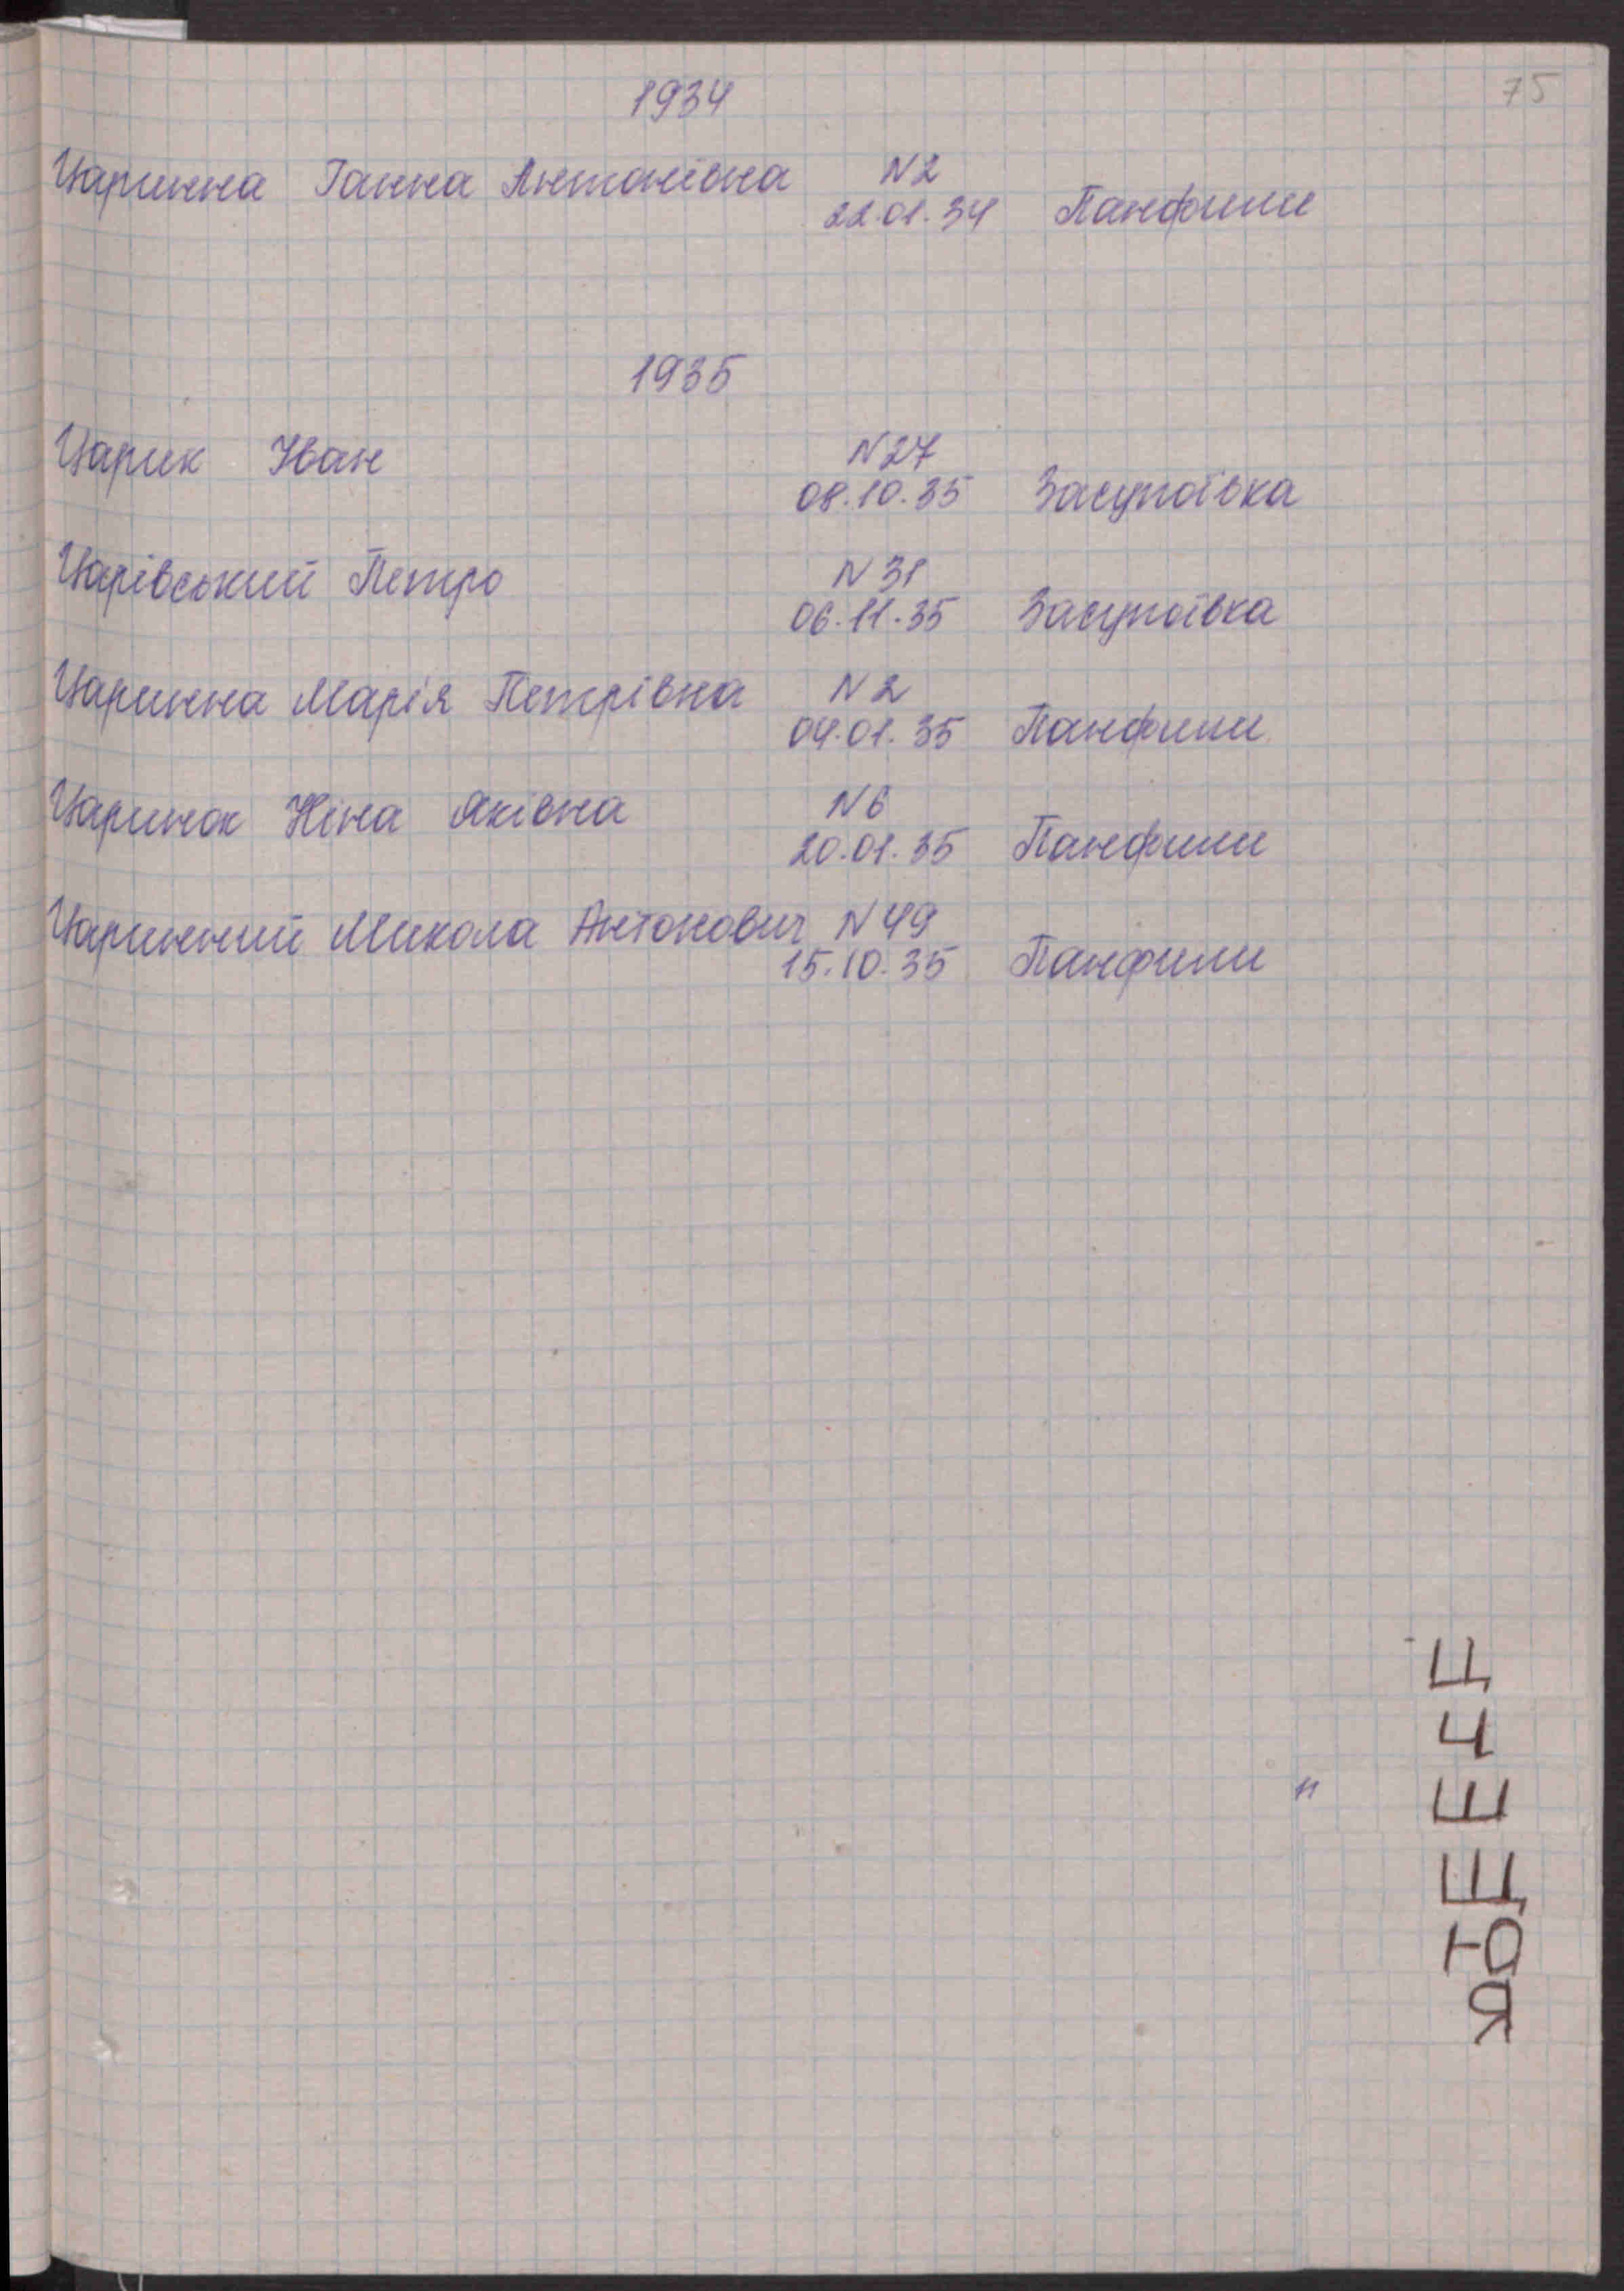 75
1934
Царинна Ганна Антонівна N2
22.01.34 Панфили
1935
Царик Іван N27
08.10.35 Засупоївка
Царівський Петро N31
06.11.35 Засупоївка
Царинна Марія Петрівна N2
04.01.35 Панфили
Царинок Ніна Яківна N6
20.01.35 Панфили
Царинний Микола Антонович N49
15.10.35 Панфили
Ц
Ч
Ш
Щ
Ю
Я